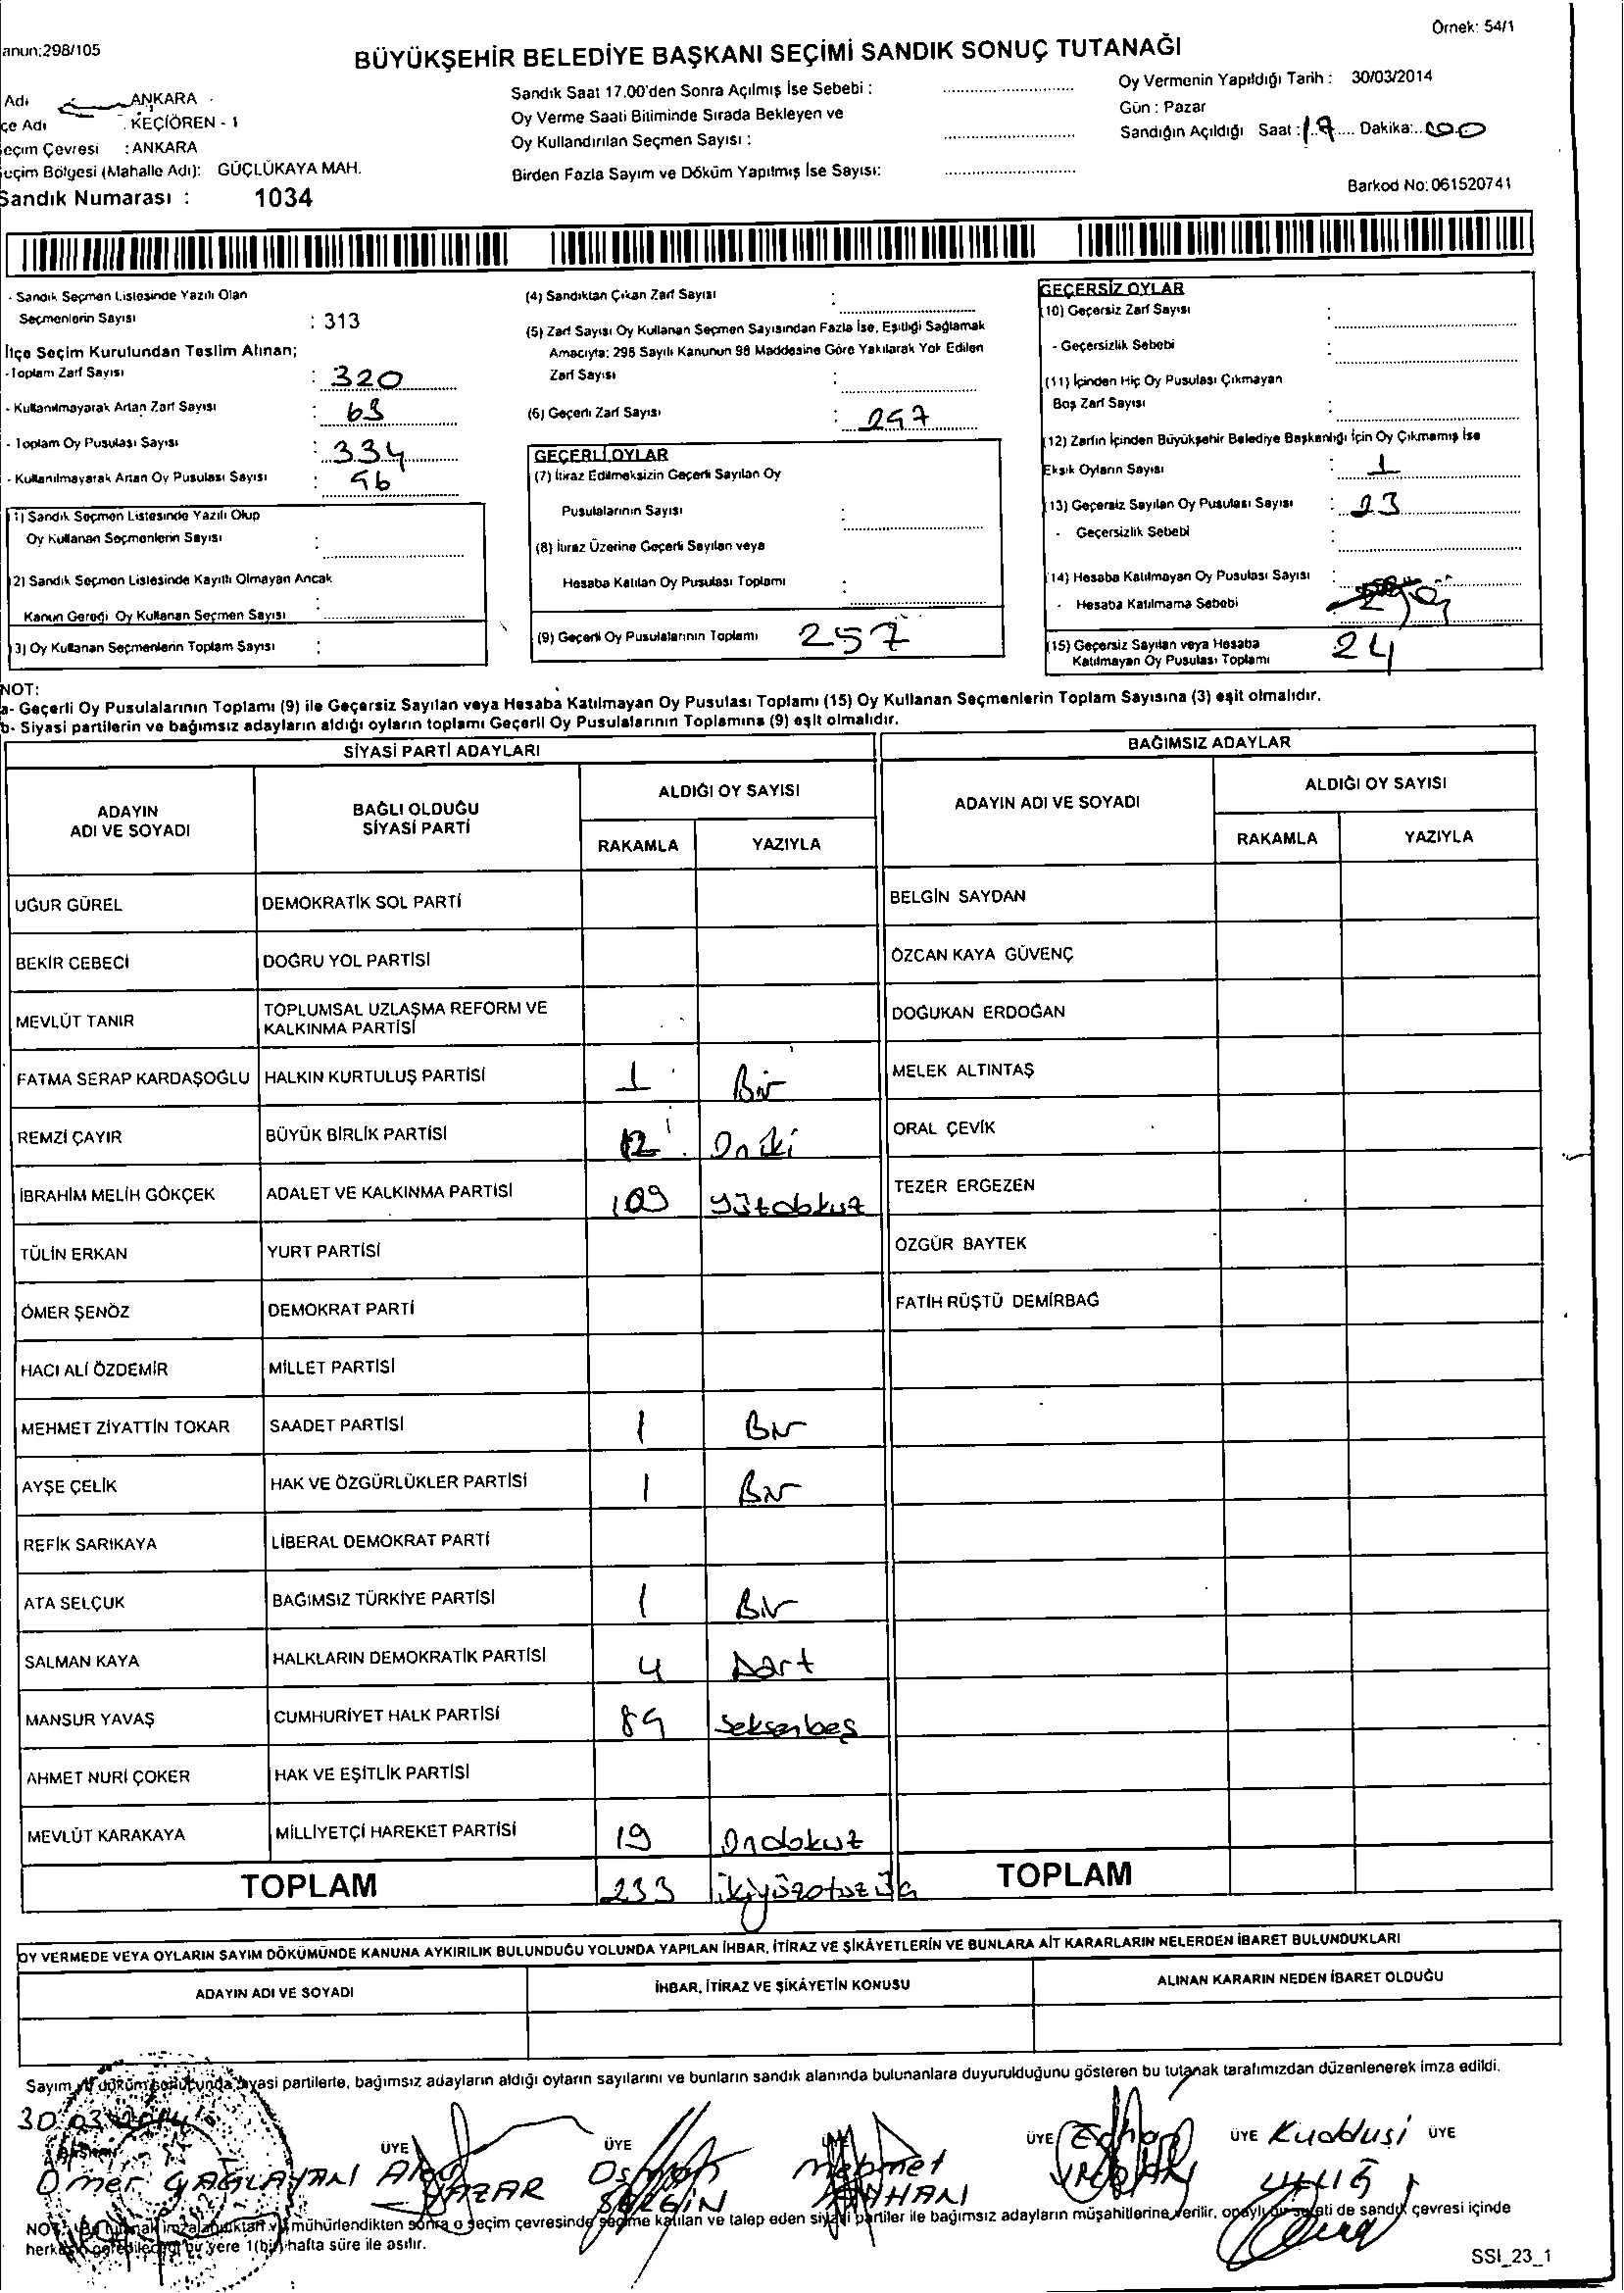 Örnek: 54/1
anun:298/105
BÜYÜKŞEHİR BELEDİYE BAŞKANI SEÇİMİ SANDIK SONUÇ TUTANAĞI
Adı ANKARA
çe Adı : KEÇİÖREN - 1
eçim Çevresi : ANKARA
eçim Bölgesi (Mahalle Adı): GÜÇLÜKAYA MAH.
Sandık Numarası : 1034
Sandık Saat 17.00'den Sonra Açılmış İse Sebebi :
Oy Verme Saati Bitiminde Sırada Bekleyen ve
Oy Kullandırılan Seçmen Sayısı :
Birden Fazla Sayım ve Döküm Yapılmış İse Sayısı:
Oy Vermenin Yapıldığı Tarih : 30/03/2014
Gün : Pazar
Sandığın Açıldığı Saat : 17 Dakika: 00
Barkod No: 061520741
- Sandık Seçmen Listesinde Yazılı Olan
Seçmenlerin Sayısı : 313
İlçe Seçim Kurulundan Teslim Alınan;
-Toplam Zarf Sayısı : 320
- Kullanılmayarak Artan Zarf Sayısı : 63
- Toplam Oy Pusulası Sayısı : 334
- Kullanılmayarak Artan Oy Pusulası Sayısı :
1) Sandık Seçmen Listesinde Yazılı Olup
Oy Kullanan Seçmenlerin Sayısı :
2) Sandık Seçmen Listesinde Kayıtlı Olmayan Ancak
Kanun Gereği Oy Kullanan Seçmen Sayısı :
3) Oy Kullanan Seçmenlerin Toplam Sayısı :
(4) Sandıktan Çıkan Zarf Sayısı :
(5) Zarf Sayısı Oy Kullanan Seçmen Sayısından Fazla İse, Eşitliği Sağlamak
Amacıyla: 298 Sayılı Kanunun 98 Maddesine Göre Yakılarak Yok Edilen
Zarf Sayısı :
(6) Geçerli Zarf Sayısı : 257
GEÇERLİ OYLAR
(7) İtiraz Edilmeksizin Geçerli Sayılan Oy
Pusulalarının Sayısı :
(8) İtiraz Üzerine Geçerli Sayılan veya
Hesaba Katılan Oy Pusulası Toplamı :
(9) Geçerli Oy Pusulalarının Toplamı 257
GEÇERSİZ OYLAR
(10) Geçersiz Zarf Sayısı :
- Geçersizlik Sebebi :
(11) İçinden Hiç Oy Pusulası Çıkmayan
Boş Zarf Sayısı :
(12) Zarfın İçinden Büyükşehir Belediye Başkanlığı İçin Oy Çıkmamış İse
Eksik Oyların Sayısı : 1
(13) Geçersiz Sayılan Oy Pusulası Sayısı : 23
- Geçersizlik Sebebi :
(14) Hesaba Katılmayan Oy Pusulası Sayısı :
- Hesaba Katılmama Sebebi :
(15) Geçersiz Sayılan veya Hesaba
Katılmayan Oy Pusulası Toplamı 24
NOT:
a- Geçerli Oy Pusulalarının Toplamı (9) ile Geçersiz Sayılan veya Hesaba Katılmayan Oy Pusulası Toplamı (15) Oy Kullanan Seçmenlerin Toplam Sayısına (3) eşit olmalıdır.
b- Siyasi partilerin ve bağımsız adayların aldığı oyların toplamı Geçerli Oy Pusulalarının Toplamına (9) eşit olmalıdır.
SİYASİ PARTİ ADAYLARI
BAĞIMSIZ ADAYLAR
ADAYIN ADI VE SOYADI
BAĞLI OLDUĞU SİYASİ PARTİ
ALDIĞI OY SAYISI
RAKAMLA YAZIYLA
ADAYIN ADI VE SOYADI
ALDIĞI OY SAYISI
RAKAMLA YAZIYLA
UĞUR GÜREL DEMOKRATİK SOL PARTİ BELGİN SAYDAN
BEKİR CEBECİ DOĞRU YOL PARTİSİ ÖZCAN KAYA GÜVENÇ
MEVLÜT TANIR TOPLUMSAL UZLAŞMA REFORM VE KALKINMA PARTİSİ DOĞUKAN ERDOĞAN
FATMA SERAP KARDAŞOĞLU HALKIN KURTULUŞ PARTİSİ 1 Bir MELEK ALTINTAŞ
REMZİ ÇAYIR BÜYÜK BİRLİK PARTİSİ 12 Oniki ORAL ÇEVİK
İBRAHİM MELİH GÖKÇEK ADALET VE KALKINMA PARTİSİ 109 yüzdokuz TEZER ERGEZEN
TÜLİN ERKAN YURT PARTİSİ ÖZGÜR BAYTEK
ÖMER ŞENÖZ DEMOKRAT PARTİ FATİH RÜŞTÜ DEMİRBAĞ
HACI ALİ ÖZDEMİR MİLLET PARTİSİ
MEHMET ZİYATTİN TOKAR SAADET PARTİSİ 1 Bir
AYŞE ÇELİK HAK VE ÖZGÜRLÜKLER PARTİSİ 1 Bir
REFİK SARIKAYA LİBERAL DEMOKRAT PARTİ
ATA SELÇUK BAĞIMSIZ TÜRKİYE PARTİSİ 1 Bir
SALMAN KAYA HALKLARIN DEMOKRATİK PARTİSİ 4 Dört
MANSUR YAVAŞ CUMHURİYET HALK PARTİSİ 85 seksenbeş
AHMET NURİ ÇOKER HAK VE EŞİTLİK PARTİSİ
MEVLÜT KARAKAYA MİLLİYETÇİ HAREKET PARTİSİ 19 Ondokuz
TOPLAM 233 ikiyüzotuzüç TOPLAM
OY VERMEDE VEYA OYLARIN SAYIM DÖKÜMÜNDE KANUNA AYKIRILIK BULUNDUĞU YOLUNDA YAPILAN İHBAR, İTİRAZ VE ŞİKÂYETLERİN VE BUNLARA AİT KARARLARIN NELERDEN İBARET BULUNDUKLARI
ADAYIN ADI VE SOYADI İHBAR, İTİRAZ VE ŞİKÂYETİN KONUSU ALINAN KARARIN NEDEN İBARET OLDUĞU
Sayım ve döküm sonucunda siyasi partilerle, bağımsız adayların aldığı oyların sayılarını ve bunların sandık alanında bulunanlara duyurulduğunu gösteren bu tutanak tarafımızdan düzenlenerek imza edildi.
30.03.2014
BAŞKAN ÜYE ÜYE ÜYE ÜYE ÜYE
Ömer ÇAĞLAYAN Osman Mehmet Erhan Kuddusi
NOT: Bu tutanak imzalandıktan ve mühürlendikten sonra o seçim çevresinde seçime katılan ve talep eden siyasi partiler ile bağımsız adayların müşahitlerine verilir, onaylı bir sureti de sandık çevresi içinde
herkesin görebileceği bir yere 1(bir) hafta süre ile asılır.
SSI_23_1